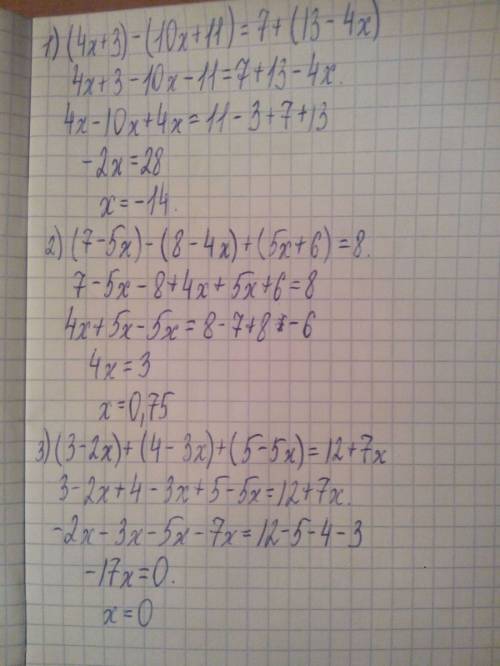 1) (4x+3)-(10x+11)=7+(13-4x)
4x+3-10x-11=7+13-4x.
4x-10x+4x=11-3+7+13
-2x=28
x=-14.
2) (7-5x)-(8-4x)+(5x+6)=8.
7-5x-8+4x+5x+6=8
4x+5x-5x=8-7+8-6
4x=3
x=0,75
3) (3-2x)+(4-3x)+(5-5x)=12+7x
3-2x+4-3x+5-5x=12+7x.
-2x-3x-5x-7x=12-5-4-3
-17x=0.
x=0